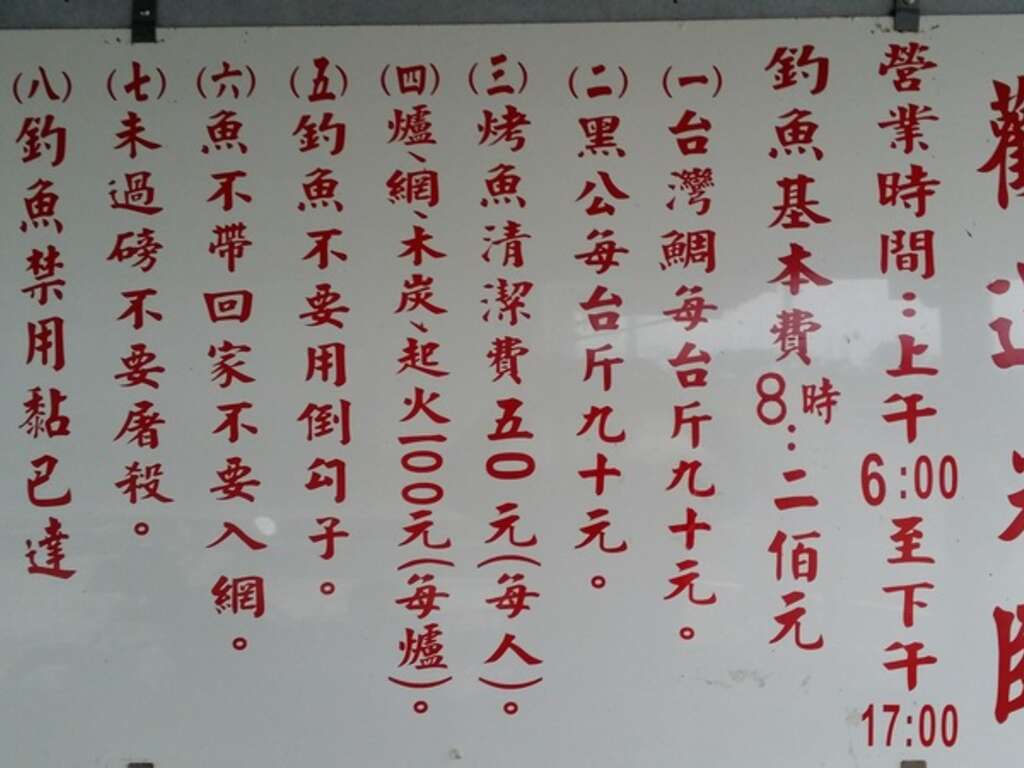 歡迎光臨
營業時間：上午6:00至下午17:00
釣魚基本費8時：二佰元
(一)台灣鯛每台斤九十元。
(二)黑公每台斤九十元。
(三)烤魚清潔費五０元(每人)。
(四)爐、網、木炭、起火一００元(每爐)。
(五)釣魚不要用倒勾子。
(六)魚不帶回家不要入網。
(七)未過磅不要屠殺。
(八)釣魚禁用黏巴達